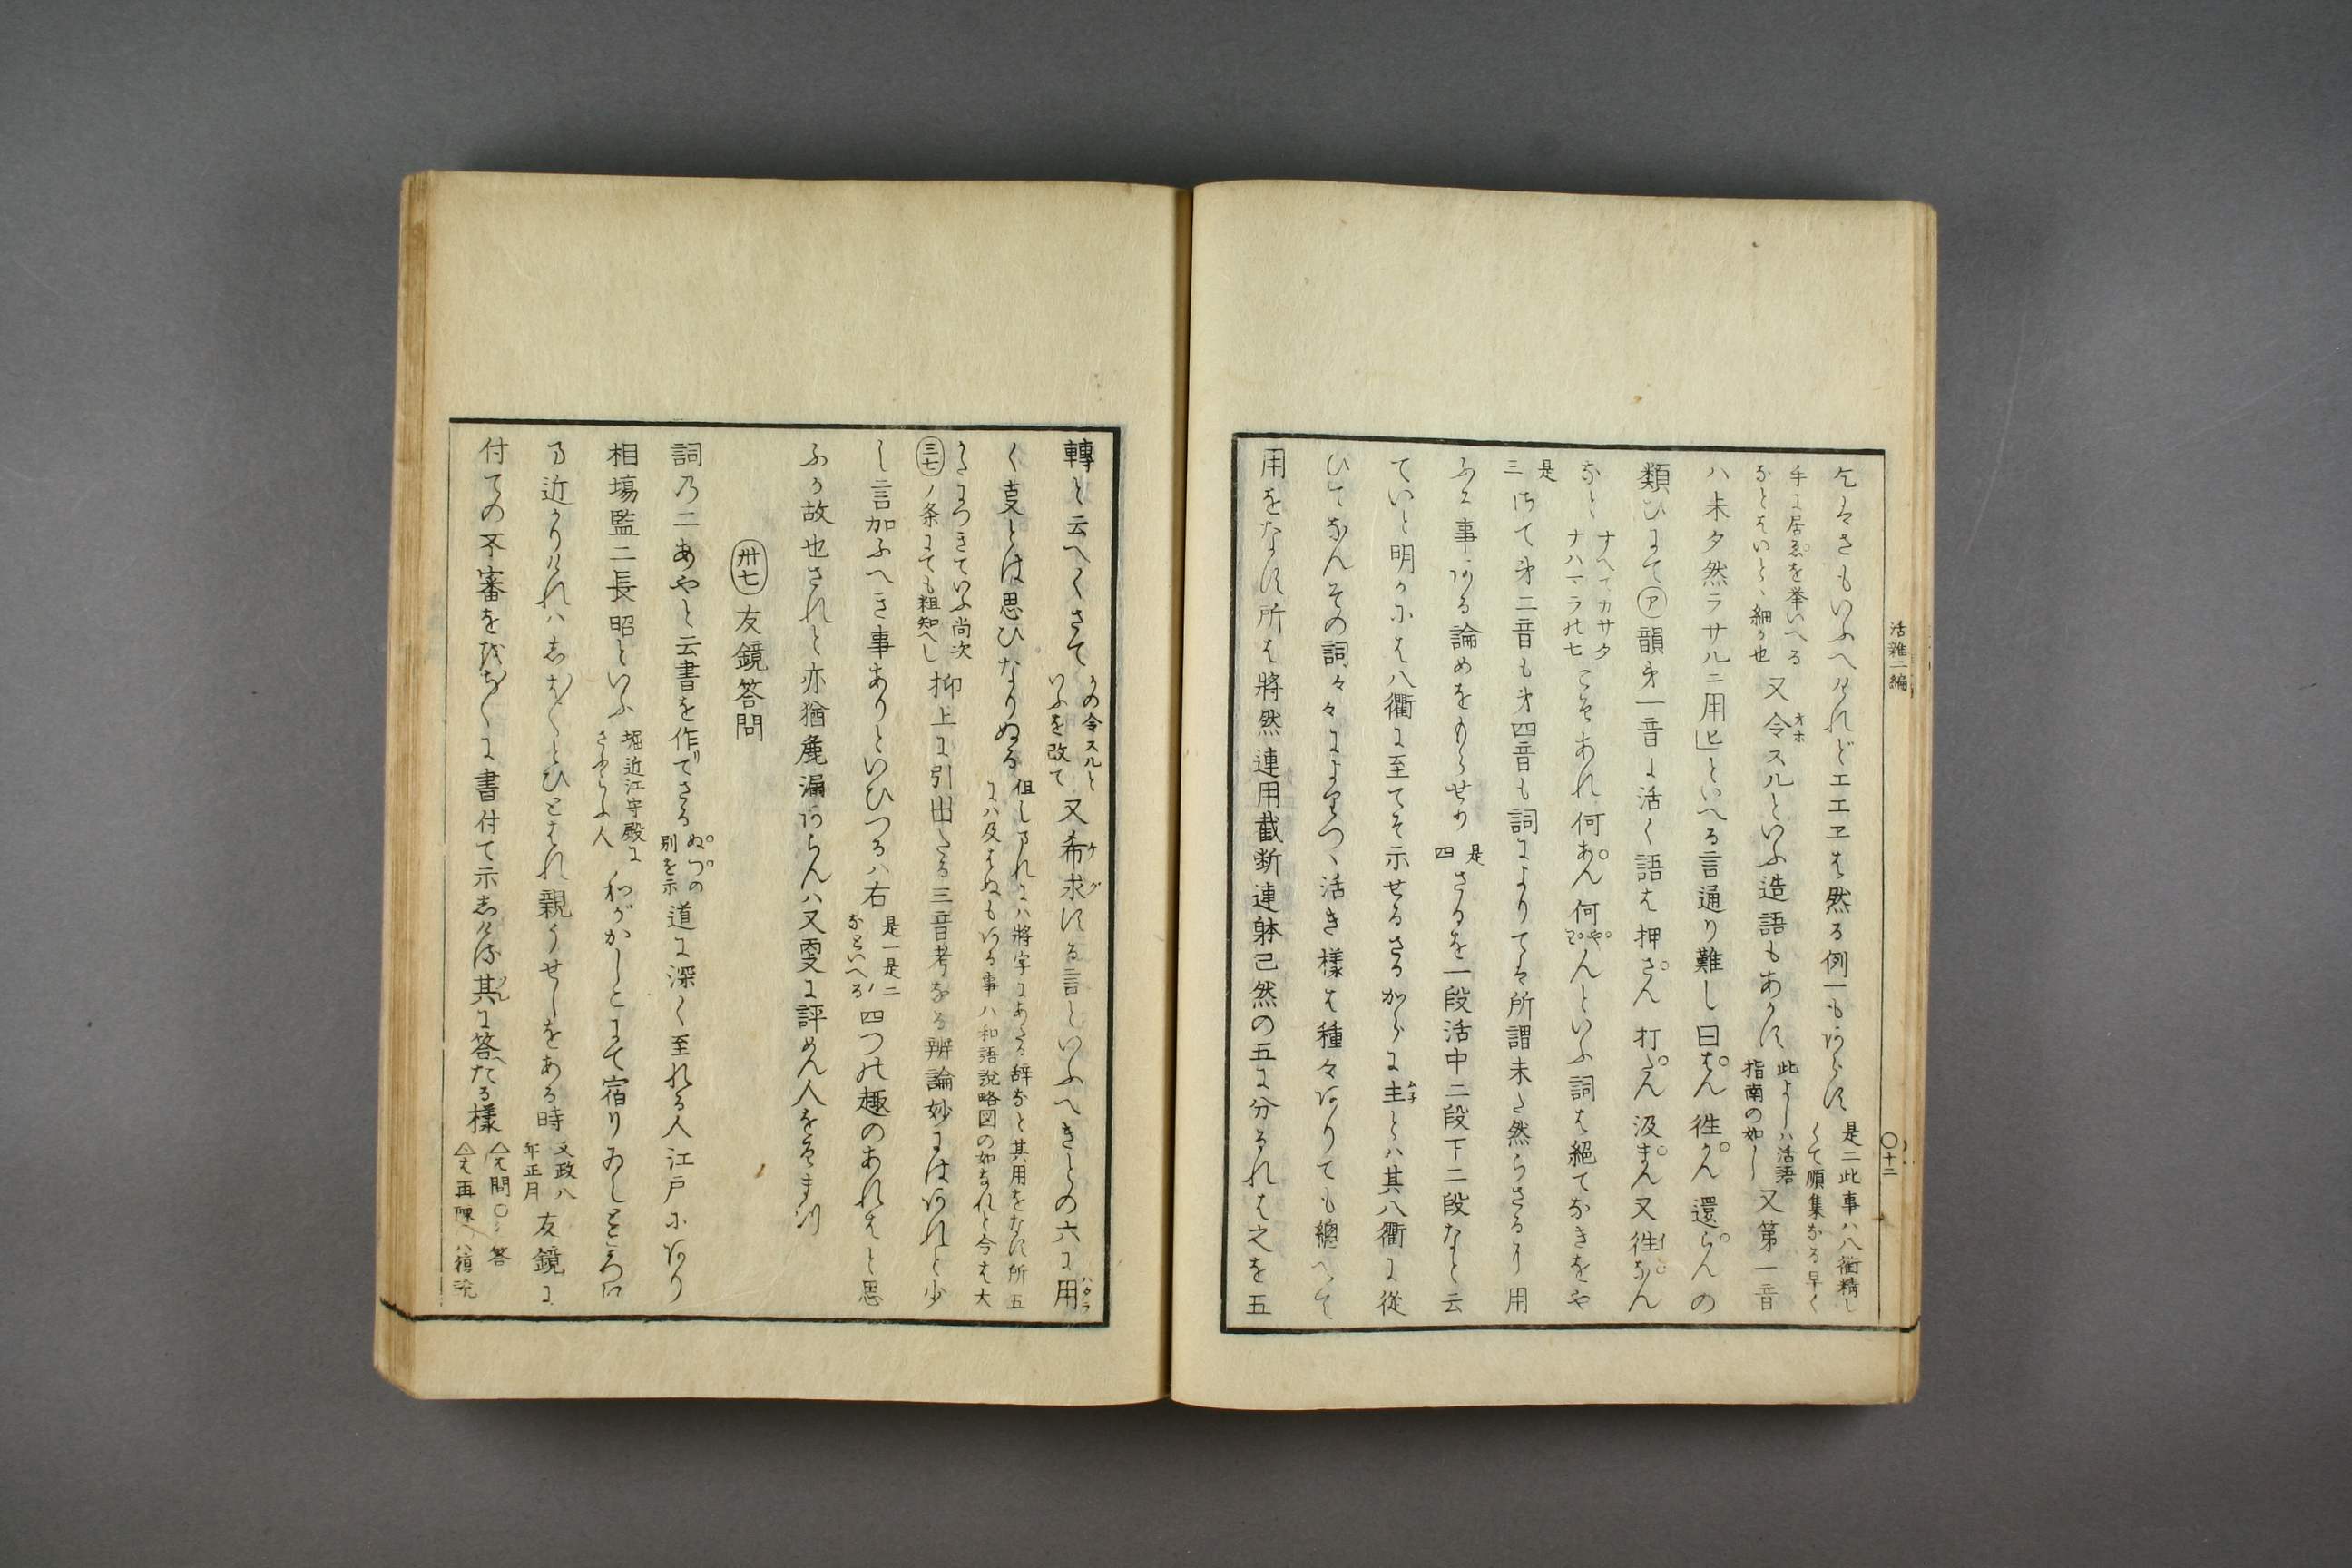 活雜二編
〇十二
乞はさもいふへけれどエエヱは然る例一もあらす 是二此事ハ八衢精し
くて順集なる早く
手に居ゑを挙いへる
なとはいとゝ細か也 又令スルといふ造語もあらす 此よしハ活語
指南の如し 又第一音
ハ未タ然ラサルニ用ヒといへる言通り難し曰はん徃かん還らんの
類ひにて㋐韻第一音に活く語は押さん打たん汲まん又徃なん
なと ナヘテカサタ
ナハマラの七 こそあれ何あん何やんといふ詞は絶てなきをや
是三 さて第二音も第四音も詞によりては所謂未た然らさるに用
ふる事ある論めをもらせり 是四 さるを一段活中二段下二段なと云
ていと明かなは八衢に至てそ示せるさるからに主とハ其八衢に從
ひてなんその詞々々によりつゝ活き樣は種々ありても總へて
用をなす所は將然連用截断連躰已然の五に分るれは之を五
轉と云へくさて かの令スルと
いふを改て 又希求する言といふへきとの六に用
く支とは思ひなりぬる 但しされにハ將字にあたる辞なと其用をなす所五
にハ及はぬもある事ハ和語説略図の如なれと今は大
かたにつきていふ尚次
三七ノ条にても粗知へし 抑上に引出たる三音考なる辨論妙にはあれと少
し言加ふへき事ありといひつるハ右 是一是二
なといへる 四つの趣のあれはと思
ふか故也されと亦猶麁漏あらんハ又更に評めん人をそまつ
卅七 友鏡答問
詞乃二あやと云書を作りてさる ぬつの
別を示 道に深く至れる人江戸にあり
相塲監二長昭といふ 堀近江守殿に
さふらふ人 わがかしこにて宿りゐしところに
も近かりけれハしは〱とひとはれ親うせしをある時 文政八
年正月 友鏡に
付ての不審をはか〱に書付て示しける其に答たる樣 △は問〇は答
△は再陳ハ猶説